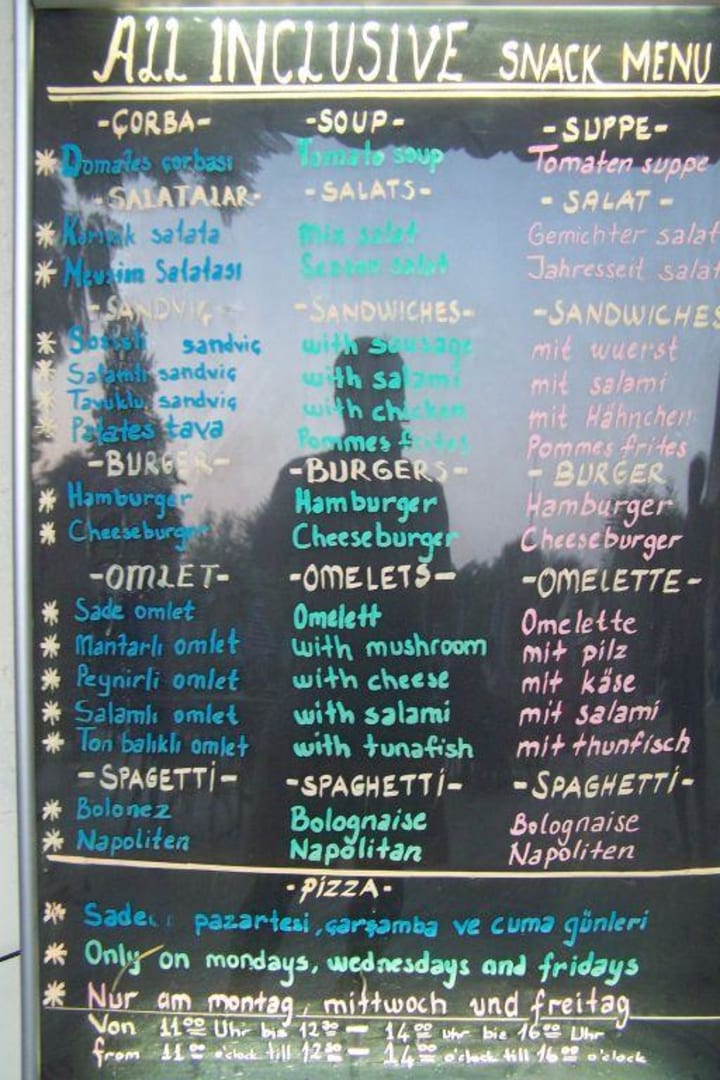 ALL INCLUSIVE SNACK MENU
-ÇORBA- -SOUP- -SUPPE-
* Domates çorbası Tomato soup Tomaten suppe
-SALATALAR- -SALATS- -SALAT-
* Karışık salata Mix salat Gemichter salat
* Mevsim Salatası Season salat Jahresseit salat
-SANDVİÇ- -SANDWICHES- -SANDWICHES
* Sosisli sandviç with sausage mit wuerst
* Salamlı sandviç with salami mit salami
* Tavuklu sandviç with chicken mit Hähnchen
* Patates tava Pommes frites Pommes frites
-BURGER- -BURGERS- -BURGER
* Hamburger Hamburger Hamburger
* Cheeseburger Cheeseburger Cheeseburger
-OMLET- -OMELETS- -OMELETTE-
* Sade omlet Omelett Omelette
* Mantarlı omlet with mushroom mit pilz
* Peynirli omlet with cheese mit käse
* Salamlı omlet with salami mit salami
* Ton balıklı omlet with tunafish mit thunfisch
-SPAGETTİ- -SPAGHETTİ- -SPAGHETTİ-
* Bolonez Bolognaise Bolognaise
* Napoliten Napolitan Napoliten
-PİZZA-
* Sadece pazartesi, çarşamba ve cuma günleri
* Only on mondays, wednesdays and fridays
* Nur am montag, mittwoch und freitag
Von 11⁰⁰ Uhr bis 12³⁰ - 14⁰⁰ uhr bie 16⁰⁰ Uhr
from 11⁰⁰ o'clock till 12³⁰ - 14⁰⁰ o'clock till 16⁰⁰ o'clock